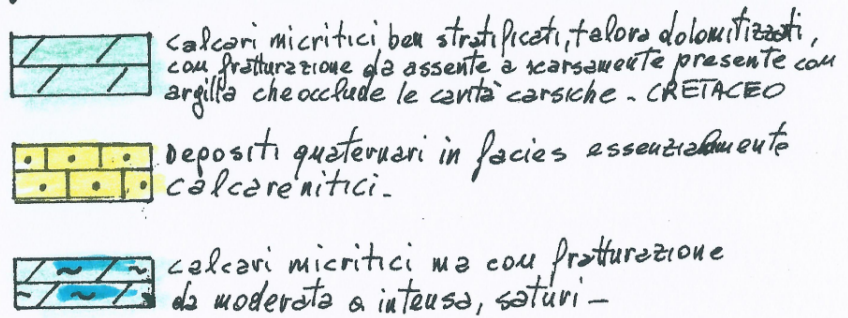 calcari micritici, ben stratificati, talora dolomitizzati,
con fratturazione da assente a scarsamente presente con
argilla che occlude le cavità carsiche - CRETACEO
Depositi quaternari in facies essenzialmente
calcarenitici -
calcari micritici ma con fratturazione
da moderata a intensa, saturi -